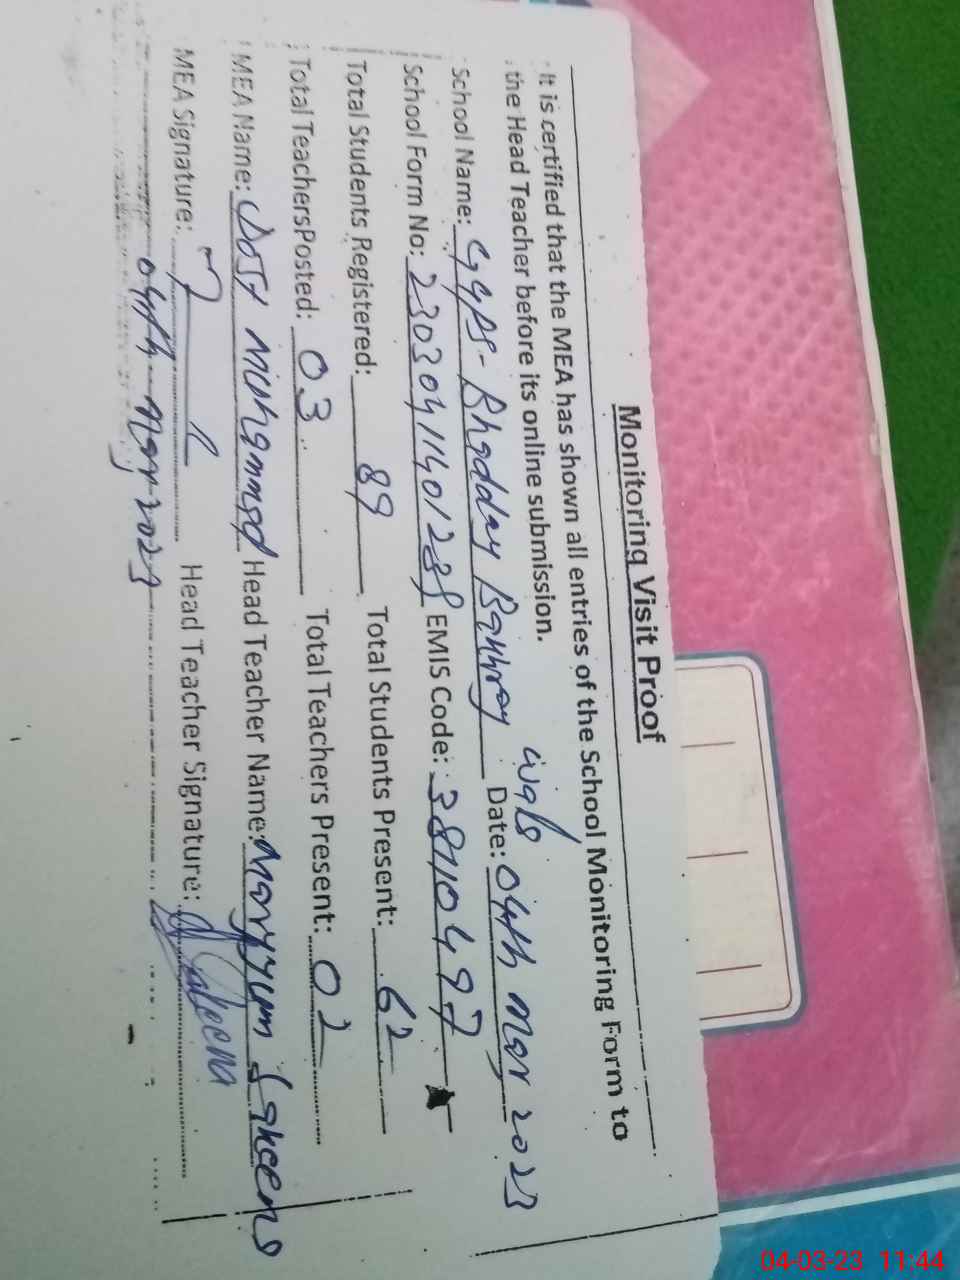 Monitoring Visit Proof
It is certified that the MEA has shown all entries of the School Monitoring Form to
the Head Teacher before its online submission.
School Name: GGPS-Khadday Date: 04th Mar 2023
School Form No: EMIS Code: 38110497
Total Students Registered: 89 Total Students Present: 62
Total TeachersPosted: 03 Total Teachers Present: 02
MEA Name: Dost Muhammad Head Teacher Name: Maryyum Sakeena
MEA Signature: Head Teacher Signature: Sakeena
04th Mar 2023
04-03-23 11:44